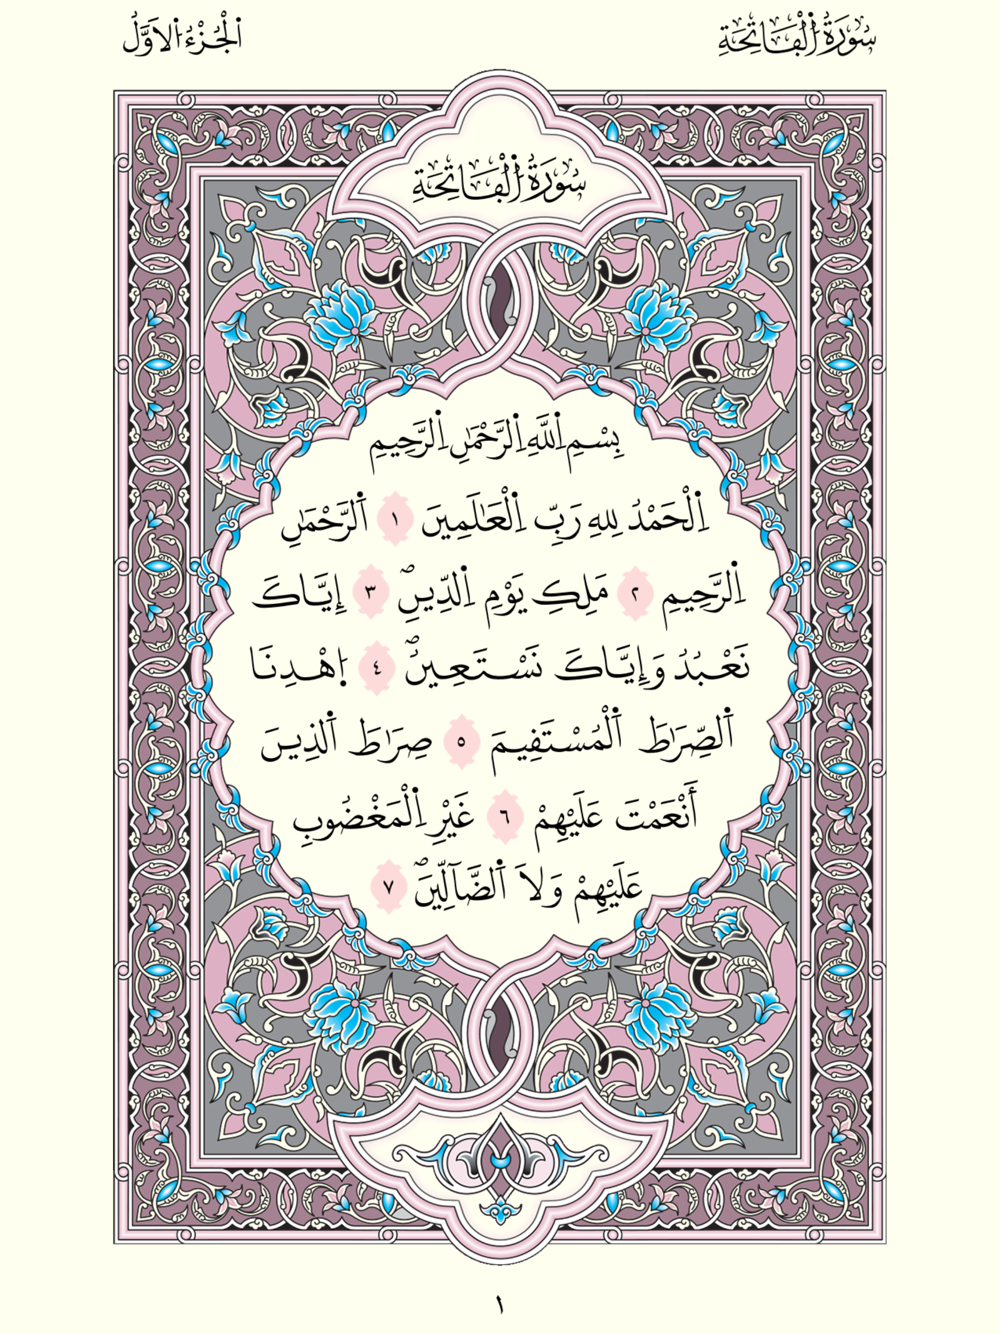 سُورَةُ اُلْفَاتِحَةِ
اَلْجُزْءُ اُلَاوَّلُ
سُورَةُ اُلْفَاتِحَةِ
بِسْمِ اِللَّهِ اِلرَّحْمَٰنِ اِلرَّحِيمِ
اِلْحَمْدُ لِلهِ رَبِّ اِلْعَٰلَمِينَ ١ اَلرَّحْمَٰنِ
اِلرَّحِيمِ ٢ مَلِكِ يَوْمِ اِلدِّينِ ٣ إِيَّاكَ
نَعْبُدُ وَإِيَّاكَ نَسْتَعِينُ ٤ اِهْدِنَا
اَلصِّرَٰطَ اَلْمُسْتَقِيمَ ٥ صِرَٰطَ اَلذِينَ
أَنْعَمْتَ عَلَيْهِمْ ٦ غَيْرِ اِلْمَغْضُوبِ
عَلَيْهِمْ وَلَا اَلضَّآلِّينَ ٧
١